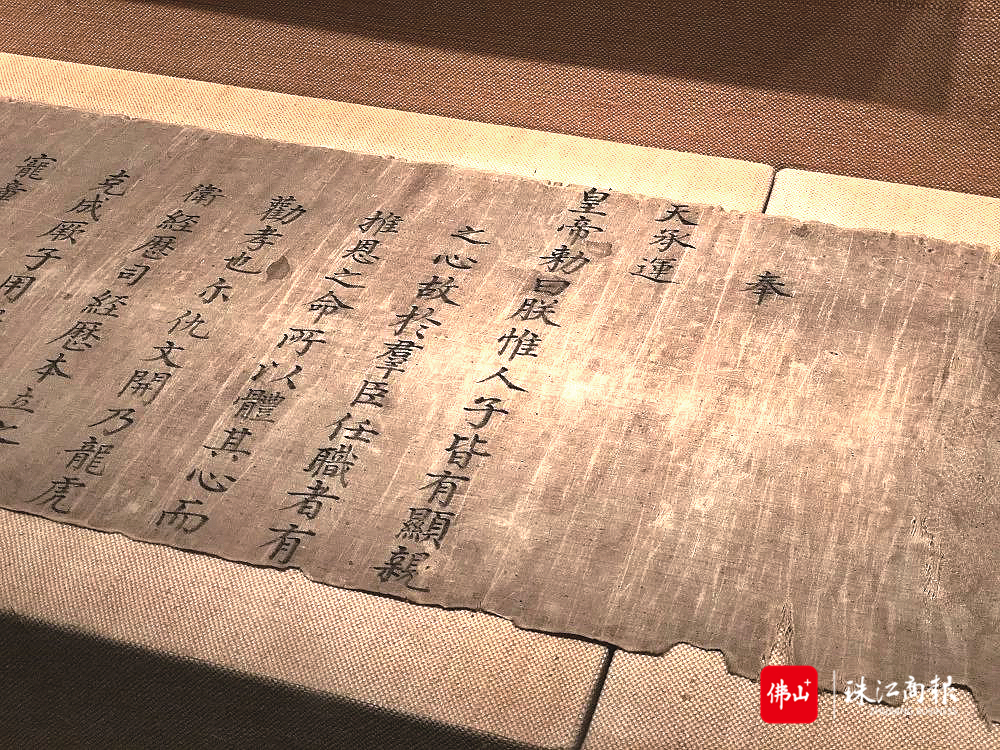 奉
天承運
皇帝勑曰朕惟人子皆有顯親
之心故於羣臣任職者有
推恩之命所以體其心而
勸孝也尒仇文開乃龍虎
衛經歷司經歷本立之
克成厥子用
寵章
佛山+
珠江商報